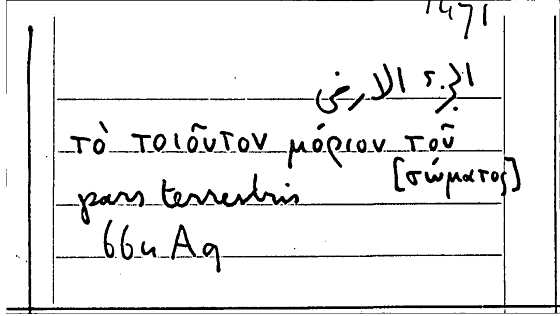 1471
الجزء الارضى
τὸ τοιοῦτον μόριον τοῦ
[σώματος]
pars terrestris
66u Aq